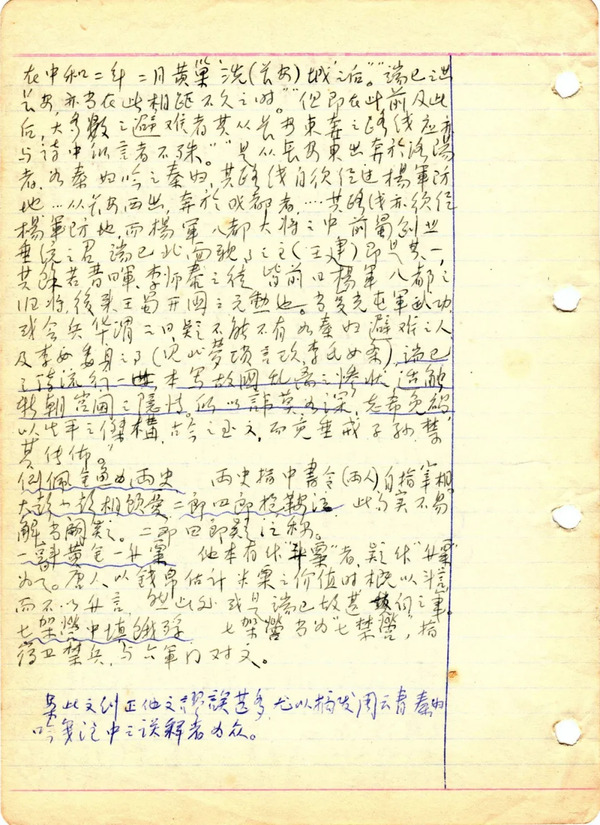 在中和二年二月黄巢洗(长安)城"之后。""端己之出
长安,亦当在此相距不久之时。""但即在此前及此
后,大多数之避难者其从长安东奔之路线应亦
与诗中所言者不殊。""是从长安东出奔於洛阳
者,如秦妇吟之秦妇,其路线自须经过杨军防
地…从长安西出,奔於成都者,…其路线亦须经
杨军防地,而杨军八都大将之中前蜀创业
垂统之君,端己北面亲事之主(王建)即是其一,
其馀若晋晖、李师泰之徒,皆前日杨军八都之
旧将,後来王蜀开国之元勲也。当复光屯军武功,
或会兵华渭之日,疑不能不有如秦妇避难之人
及李女委身之事(见北梦琐言 李氏女条),端己
之诗流行一世,本写故国乱离之惨状,适触
新朝宫阃之隐情。所以讳莫如深,志希免祸,
以生平之傑構,古今之至文,而竟垂戒子孙,禁
其传佈。"
倒佩金鱼为两史 两史指中書令(两人)自指宰相。
大彭小彭相顾忧,二郎四郎抱鞍泣 此句实不易
解,当阙疑。二郎四郎
一斗黄金一升粟 他本有作"斗粟"者,疑作"升粟"
为 。唐人以钱帛估计米粟之价值时概以斗言
而不以升言,然此处或是端己故甚 之事。
七架營中填饿殍 七架營当为"七禁營",指
禁兵,与六軍门对文。
案此文纠正他文謬誤甚多,尤以摘发周云青秦妇
吟笺注中之误释者为众。